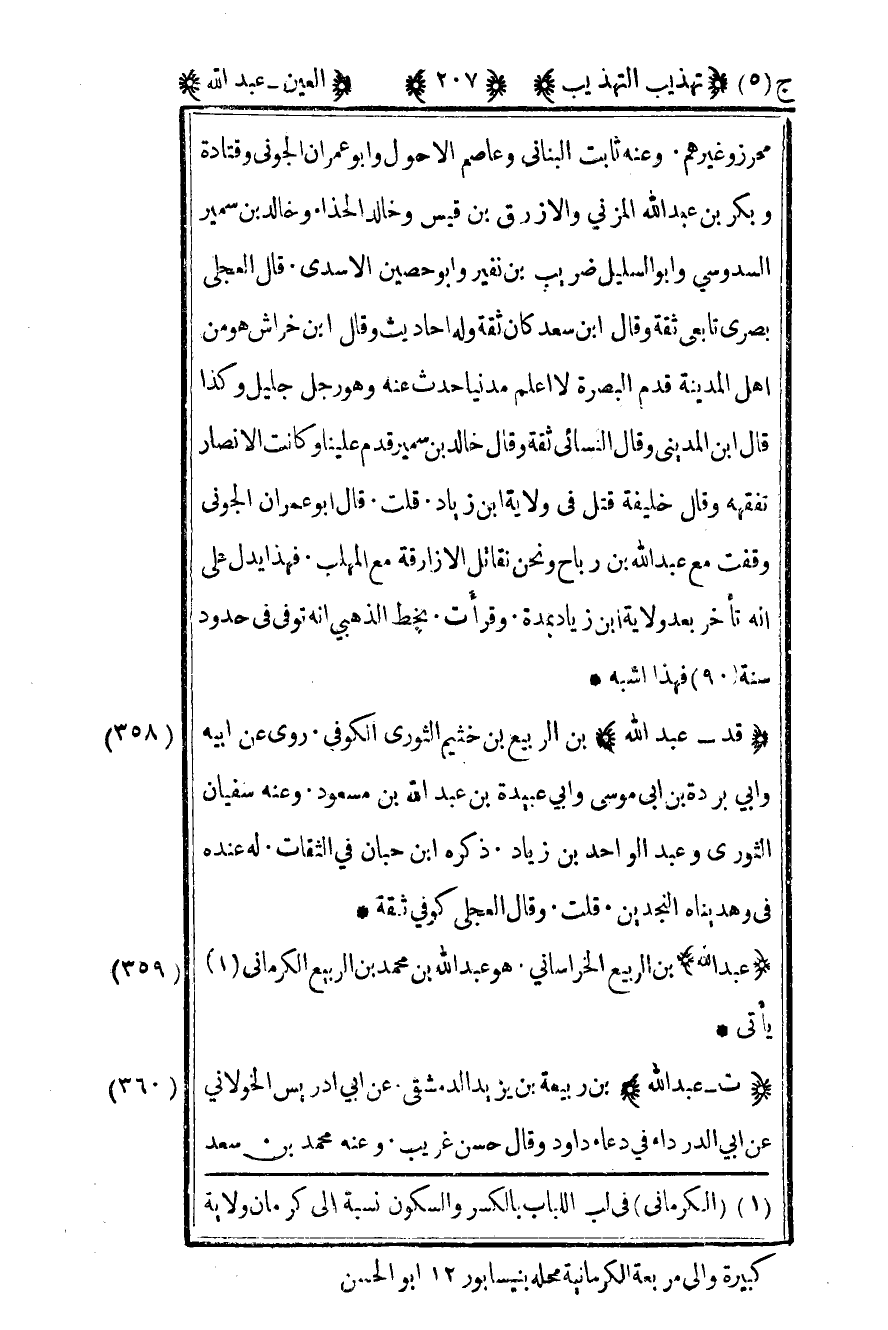 ج (٥) ﴿ تهذيب التهذيب ﴾ ﴿ ٢٠٧ ﴾ ﴿ العين ـ عبد الله ﴾
محرز وغيرهم ٠ وعنه ثابت البنانى وعاصم الاحول وابو عمران الجونى وقتادة
و بكر بن عبدالله المزني والازرق بن قيس وخالد الحذاء وخالد بن سمير
السدوسي وابو السليل ضريب بن نفير وابو حصين الاسدى ٠ قال العجلى
بصرى تابعى ثقة وقال ابن سعد كان ثقة وله احاديث وقال ابن خراش هو من
اهل المدينة قدم البصرة لا اعلم مدنيا حدث عنه وهو رجل جليل وكذا
قال ابن المدينى وقال النسائى ثقة وقال خالد بن سمير قدم علينا وكانت الانصار
تفقهه وقال خليفة قتل فى ولاية ابن زياد ٠ قلت ٠ قال ابو عمران الجونى
وقفت مع عبدالله بن رباح ونحن نقاتل الازارقة مع المهلب ٠ فهذا يدل على
انه تأخر بعد ولاية ابن زياد بمدة ٠ وقرأت ٠ بخط الذهبي انه توفى فى حدود
سنة (٩٠) فهذا اشبه *
﴿ قد ـ عبد الله ﴾ بن الربيع بن خثيم الثورى الكوفي ٠ روى عن ابيه (٣٥٨)
وابي بردة بن ابى موسى وابي عبيدة بن عبد الله بن مسعود ٠ وعنه سفيان
الثورى وعبد الواحد بن زياد ٠ ذكره ابن حبان في الثقات ٠ له عنده
فى وهديناه النجدين ٠ قلت ٠ وقال العجلى كوفي ثقة *
﴿ عبدالله ﴾ بن الربيع الخراساني ٠ هو عبدالله بن محمد بن الربيع الكرمانى (١) (٣٥٩)
يأتى *
﴿ ت ـ عبدالله ﴾ بن ربيعة بن يزيد الدمشقى ٠ عن ابي ادريس الخولاني (٣٦٠)
عن ابي الدرداء في دعاء داود وقال حسن غريب ٠ وعنه محمد بن سعد
(١) (الكرمانى) فى لب اللباب بالكسر والسكون نسبة الى كرمان ولاية
كبيرة والى مربعة الكرمانية محله بنيسابور ١٢ ابو الحسن